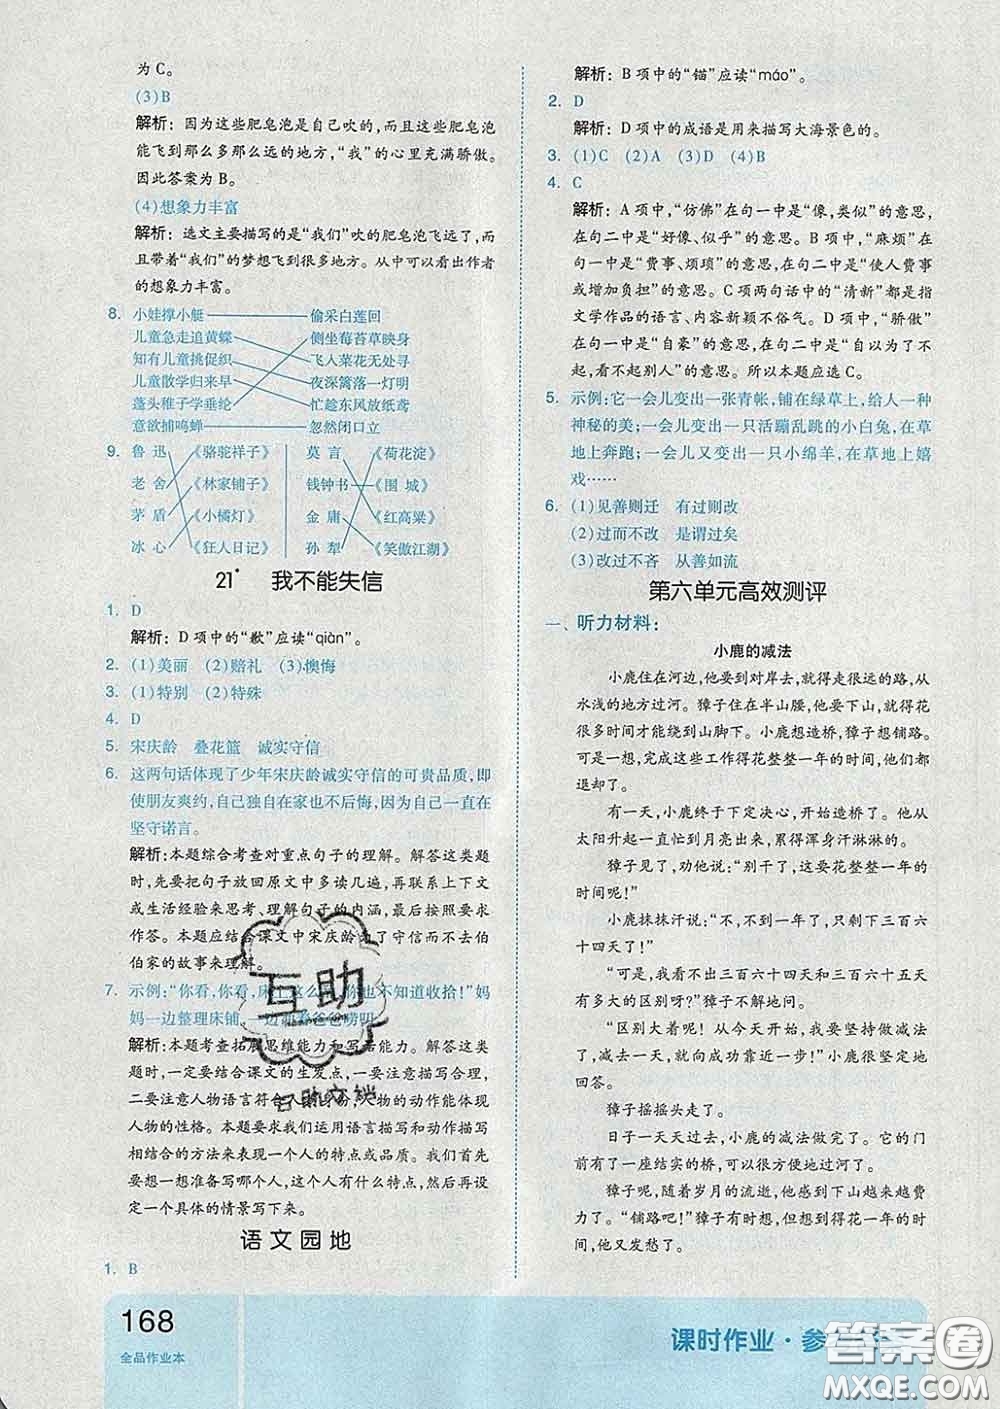 为C。
(3)B
解析：因为这些肥皂泡是自己吹的，而且这些肥皂泡
能飞到那么多那么远的地方，“我”的心里充满骄傲。
因此答案为B。
(4)想象力丰富
解析：选文主要描写的是“我们”吹的肥皂泡飞远了，而
且带着“我们”的梦想飞到很多地方。从中可以看出作者
的想象力丰富。
8. 小娃撑小艇 偷采白莲回
儿童急走追黄蝶 侧坐莓苔草映身
知有儿童挑促织 飞入菜花无处寻
儿童散学归来早 夜深篱落一灯明
蓬头稚子学垂纶 忙趁东风放纸鸢
意欲捕鸣蝉 忽然闭口立
9. 鲁迅 《骆驼祥子》 莫言 《荷花淀》
老舍 《林家铺子》 钱钟书 《围城》
茅盾 《小橘灯》 金庸 《红高粱》
冰心 《狂人日记》 孙犁 《笑傲江湖》
21* 我不能失信
1. D
解析：D项中的“歉”应读“qiàn”。
2. (1)美丽 (2)赔礼 (3)懊悔
3. (1)特别 (2)特殊
4. D
5. 宋庆龄 叠花篮 诚实守信
6. 这两句话体现了少年宋庆龄诚实守信的可贵品质，即
使朋友爽约，自己独自在家也不后悔，因为自己一直在
坚守诺言。
解析：本题综合考查对重点句子的理解。解答这类题
时，先要把句子放回原文中多读几遍，再联系上下文
或生活经验来思考、理解句子的内涵，最后按要求
作答。本题应结合课文中宋庆龄为了守信而不去伯
伯家的故事来理解。
7. 示例：“你看，你看，床上这么乱，你也不知道收拾！”妈
妈一边整理床铺，一边朝着爸爸唠叨。
解析：本题考查拓展思维能力和写话能力。解答这类
题时，一定要结合课文的生发点，一要注意描写合理，
二要注意人物语言符合人物身份，人物的动作能体现
人物的性格。本题要求我们运用语言描写和动作描写
相结合的方法来表现一个人的特点或品质。我们首先
要想一想准备写哪个人，这个人有什么特点，然后设定
一个具体的情景写下来。
语文园地
1. B
解析：B项中的“锚”应读“máo”。
2. D
解析：D项中的成语是用来描写大海景色的。
3. (1)C (2)A (3)D (4)B
4. C
解析：A项中，“仿佛”在句一中是“像，类似”的意思，
在句二中是“好像、似乎”的意思。B项中，“麻烦”在
句一中是“费事、烦琐”的意思，在句二中是“使人费事
或增加负担”的意思。C项两句话中的“清新”都是指
文学作品的语言、内容新颖不俗气。D项中，“骄傲”
在句一中是“自豪”的意思，在句二中是“自以为了不
起，看不起别人”的意思。所以本题应选C。
5. 示例：它一会儿变出一张青帐，铺在绿草上，给人一种
神秘的美；一会儿变出一只活蹦乱跳的小白兔，在草
地上奔跑；一会儿又变出一只小绵羊，在草地上嬉
戏……
6. (1)见善则迁 有过则改
(2)过而不改 是谓过矣
(3)改过不吝 从善如流
第六单元高效测评
一、听力材料：
小鹿的减法
小鹿住在河边，他要到对岸去，就得走很远的路，从
水浅的地方过河。獐子住在半山腰，他要下山，就得花
很多时间才能绕到山脚下。小鹿想造桥，獐子想铺路。
可是，想想完成这些工作得花整整一年的时间，他们都
犹豫了。
有一天，小鹿终于下定决心，开始造桥了。他从
太阳升起一直忙到月亮出来，累得浑身汗淋淋的。
獐子见了，劝他说：“别干了，这要花整整一年的
时间呢！”
小鹿抹抹汗说：“不，不到一年了，只剩下三百六
十四天了！”
“可是，我看不出三百六十四天和三百六十五天
有多大的区别呀？”獐子不解地问。
“区别大着呢！从今天开始，我要坚持做减法
了，一直减到向成功靠近一步！”小鹿很坚定地
回答。
獐子摇摇头走了。
日子一天天过去，小鹿的减法做完了。它的门
前有了一座结实的桥，可以天天方便地过河了。
獐子呢，随着岁月的流逝，他过河下山越来越费
力了。“铺路吧！”獐子有时想，但想到得花一年的时间，
他又发愁了。
168
全品作业本
课时作业·参
答案圈
MXQE.COM
互助